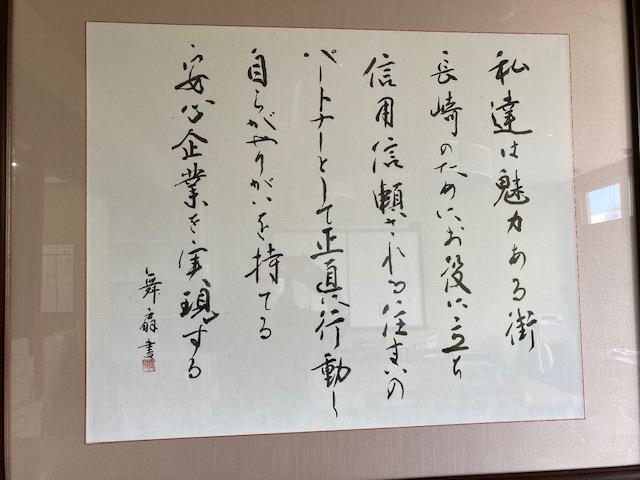 私達は魅力ある街
長崎のためにお役に立ち
信用信頼される住まいの
パートナーとして正直に行動し
自らがやりがいを持てる
安心企業を実現する
舞扇書